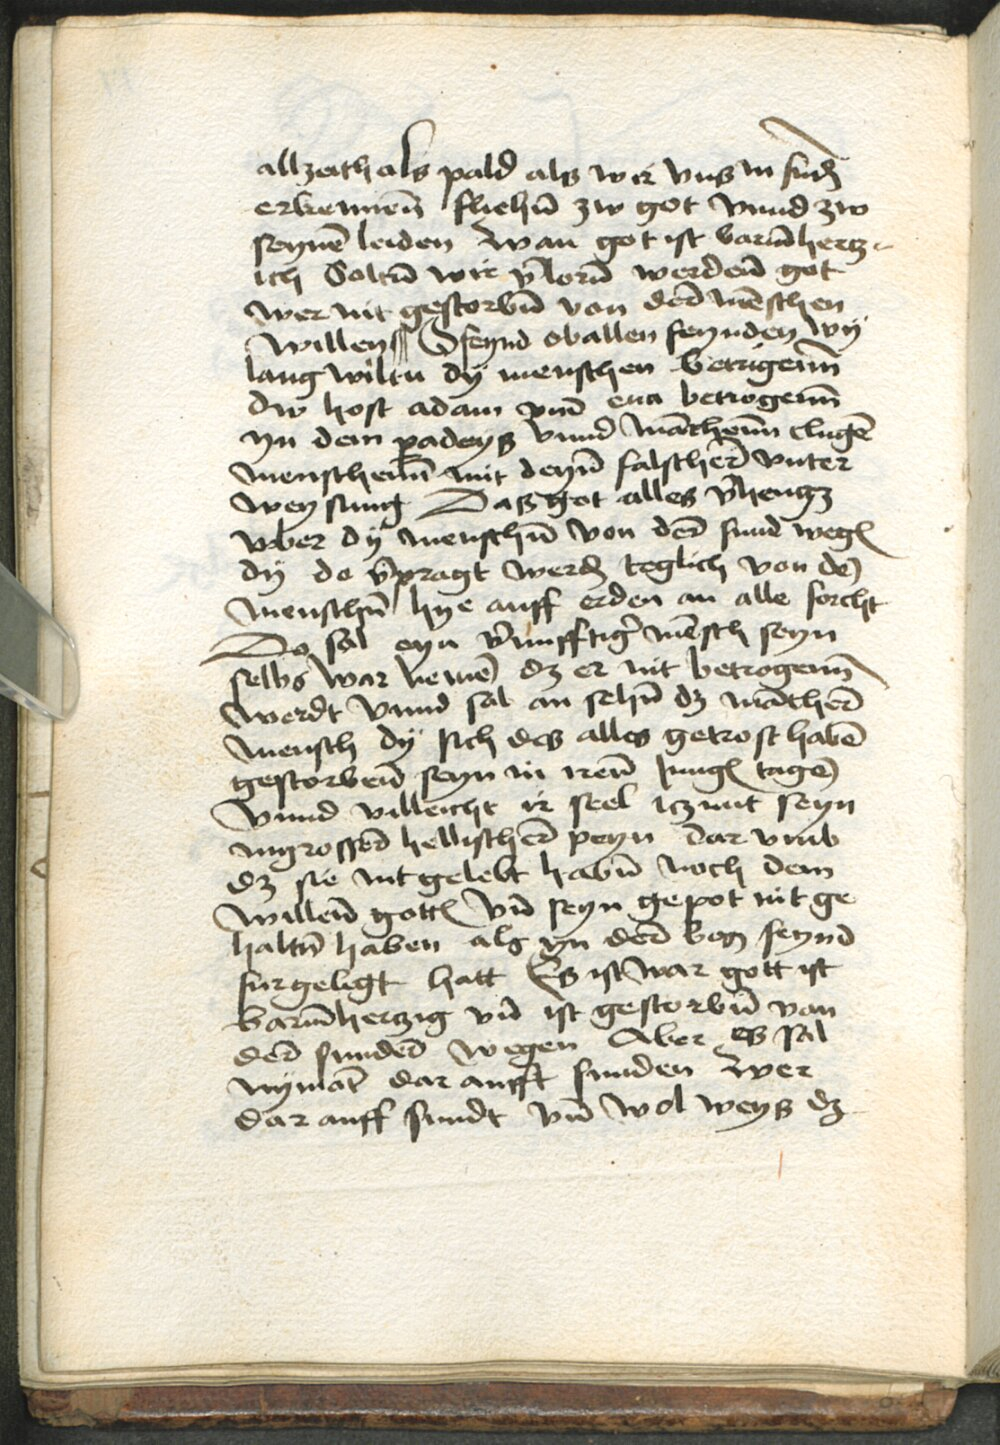 allzeith als pald als wir vns in sund
erkennen̄ fliehn̄ zw got vnnd zw
seyne̅ leiden wan got ist barm̄hertz
ich Soltn̄ wir v̄lorn̄ werdenn̄ got
wer nit gestorbn̄ von der̄ me̅schen
willens O feynd ob allen feynden wy
lang wiltu dÿ menschen betrigenn̄
dw host adam vnd̄ eua betrogenn̄
yn dem padeys vnnd ma̅chenn̄ clugē
menschenn̄ mit deyn̄ falscher̄ vnter
weysung Das got alles v̄hengt
vber dÿ menschn̄ von der̄ sund wegen
dÿ do v̄pragt werden teglich von den
menschn̄ hye auff erden an alle forcht
Do sal eyn v̄nunfftiger̄ me̅sch seyn
selbs war nemen dz er nit betrogenn̄
werdt vnnd sal an sehn̄ dz ma̅cher̄
mensch dÿ sich des alles getrost habe̅
gestorbenn̄ seyn in iren̄ jungen tagen
vnnd villeicht ir seel itzunt seyn
in grosser̄ hellischer̄ peyn dar vmb
dz sie nit gelebt habn̄ noch dem
willen̄ gottes vn̄ seyn gepot nit ge
haltn̄ haben als yn der̄ bos feynd
fur gelegt hatt Es ist war gott ist
barm̄hertzig vn̄ ist gestorbn̄ von
der̄ sunder̄ wegen Aber es sal
nyma̅t dar aufft sunden wer
dar auff sundt vn̄ wol weys dz